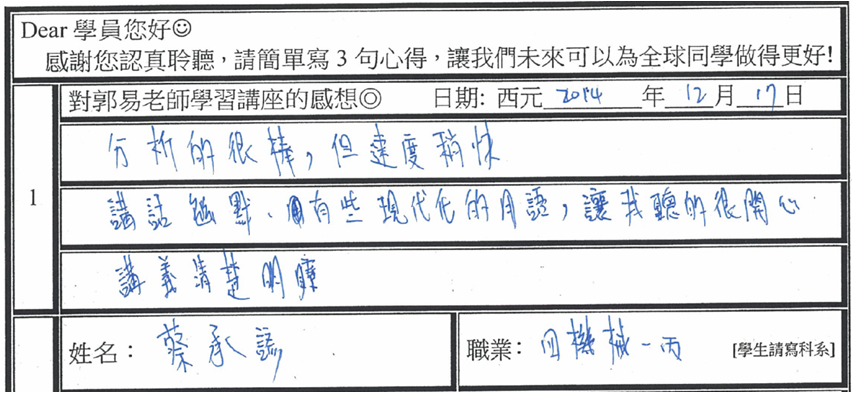 Dear 學員您好☺
感謝您認真聆聽，請簡單寫 3 句心得，讓我們未來可以為全球同學做得更好!
對郭易老師學習講座的感想◎ 日期: 西元 2014 年 12 月 17 日
1
分析的很棒，但速度稍快
講話幽默、有些現代化的用語，讓我聽的很開心
講義清楚明瞭
姓名： 蔡承
職業： 四機械一丙 [學生請寫科系]